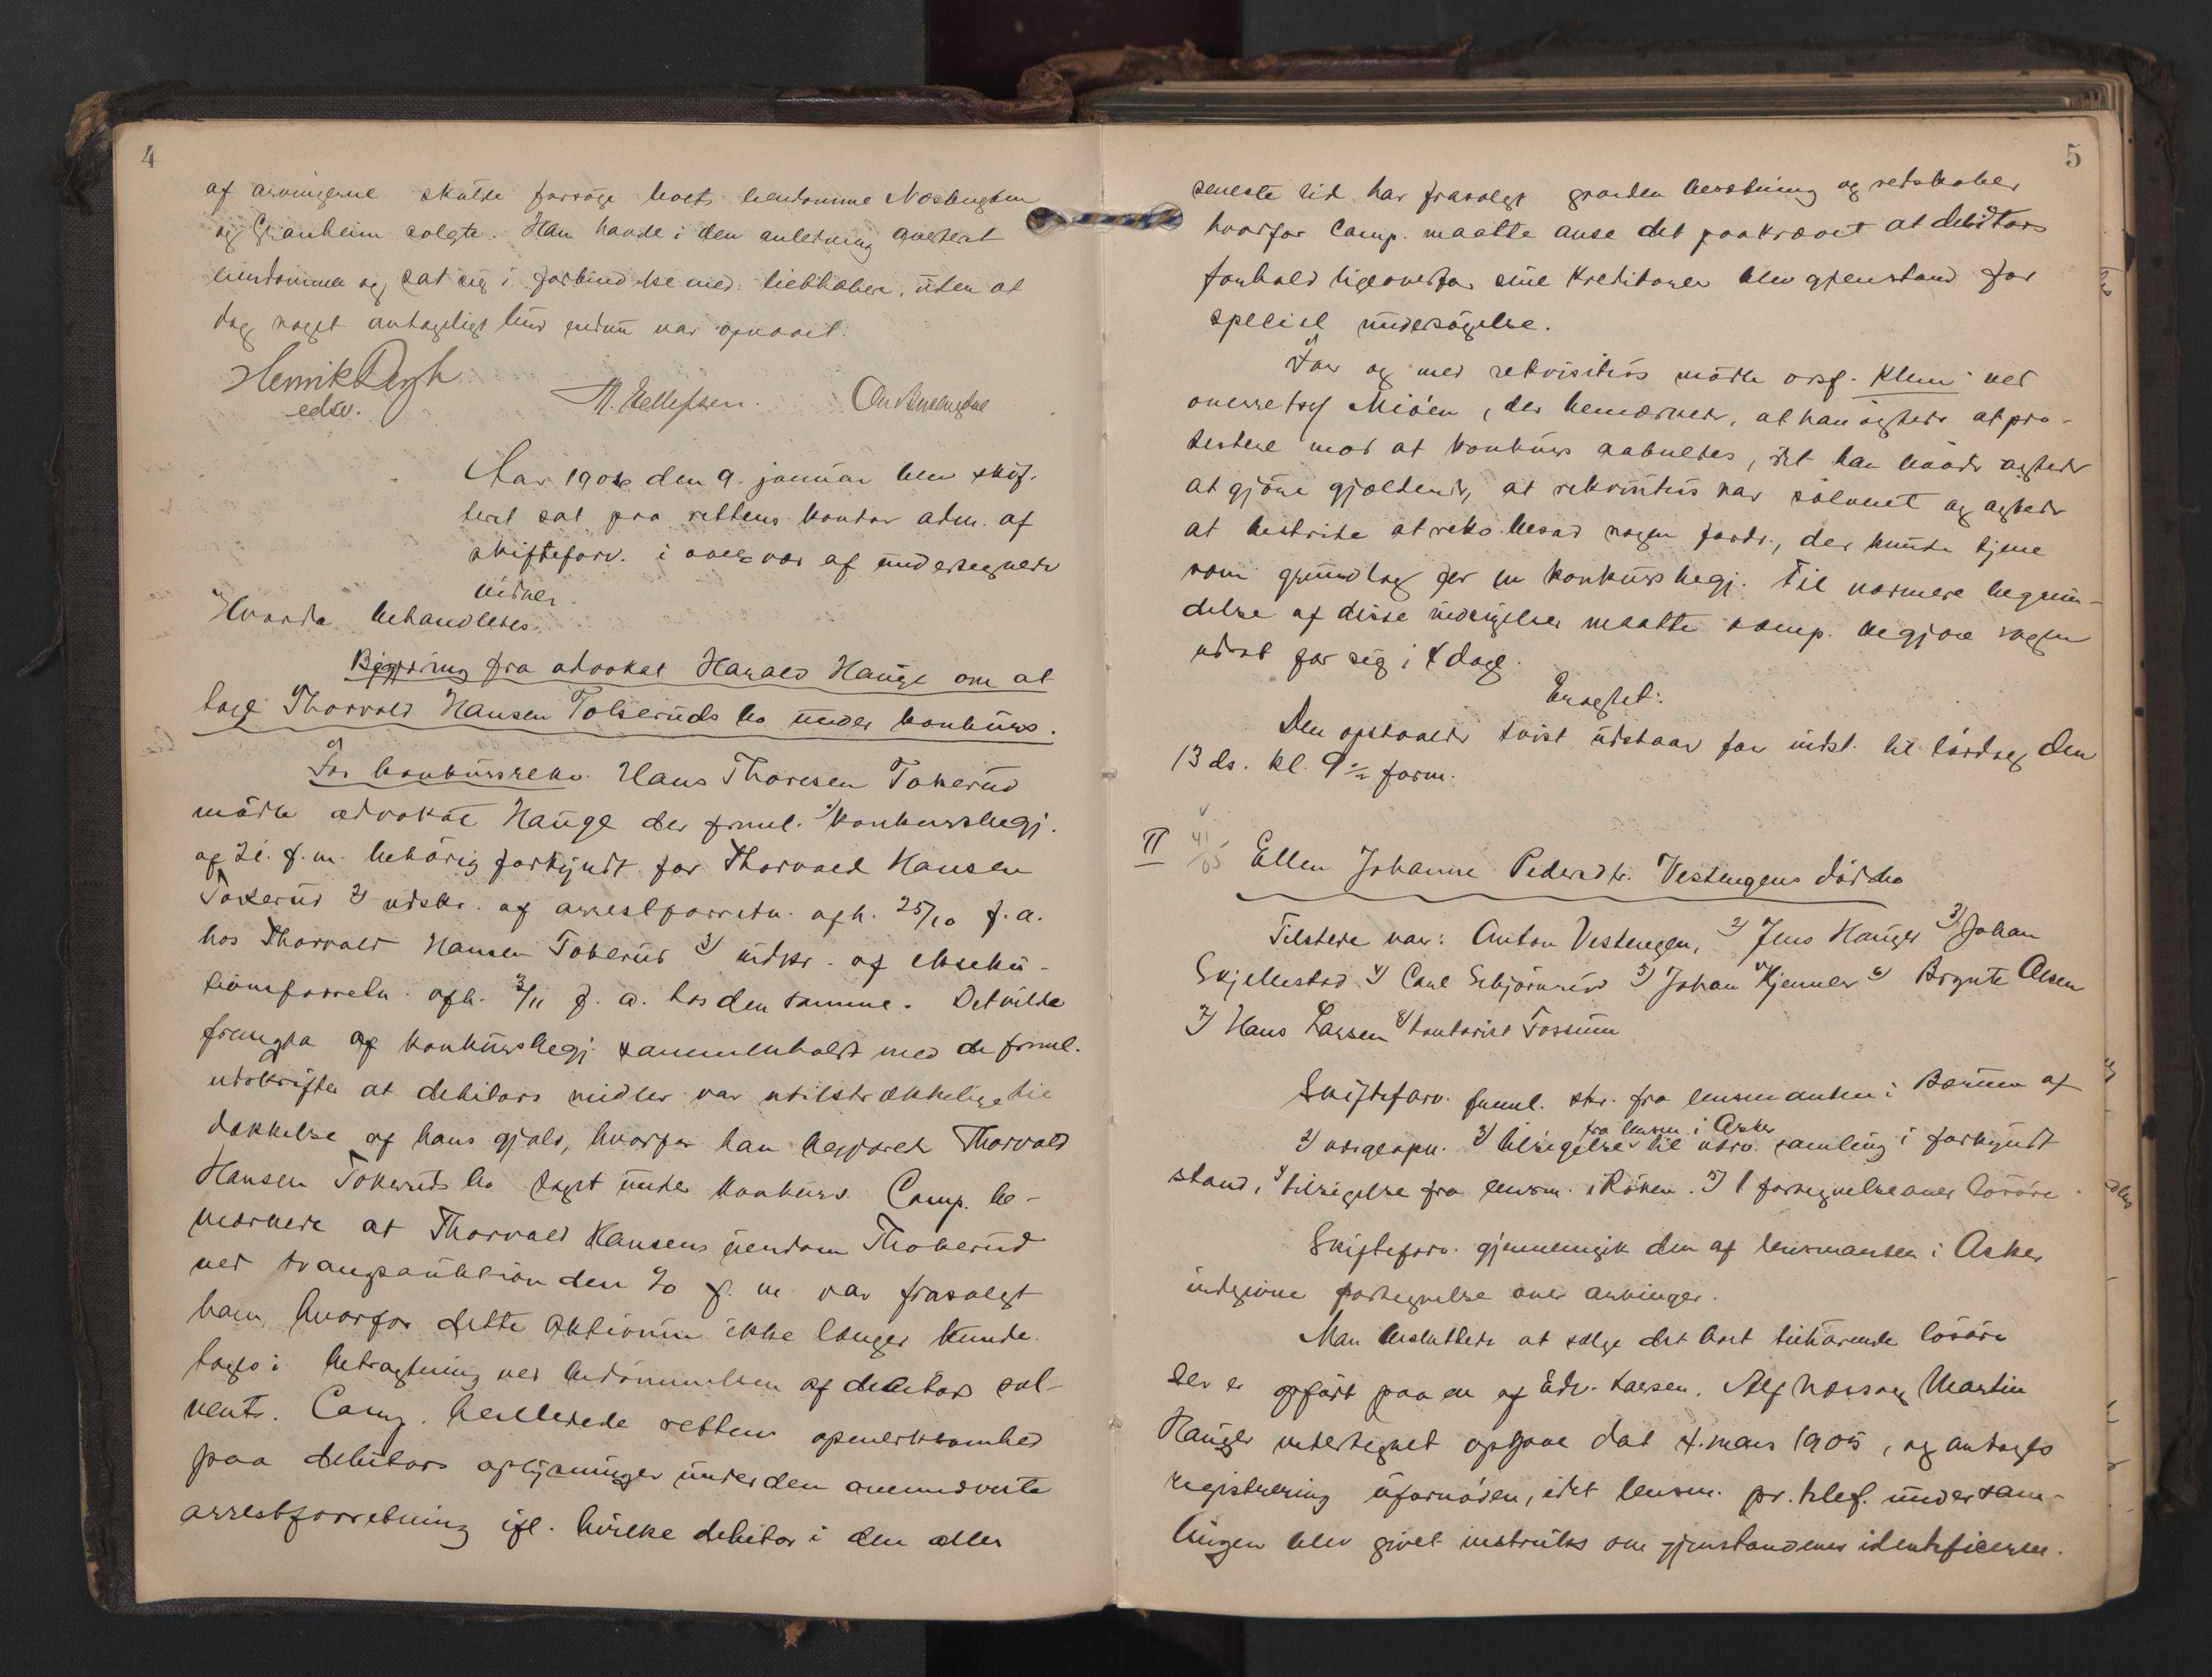 4
af arvingerne skulde forsøge boets eiendomme Næsbygden
og Granheim solgte. Han havde i den anledning averteret
eiendommen og sat sig i forbindelse med liebhabere, uden at
dog noget antageligt bud endnu var opnaaet.
Henrik
edsv.
M. Tellefsen.
Aar 1906 den 9. januar blev skif-
teret sat paa rettens kontor adm. af
skifteforv. i overvær af undertegnede
vidner.
Hvorda behandledes:
Begjæring fra advokat Harald Hauge om at
tage Thorvald Hansen Tokeruds bo under konkurs.
For konkursrekv. Hans Thoresen Tokerud
mødte advokat Hauge der freml. 1) konkursbegj.
af 21. f.m. behørig forkyndt for Thorvald Hansen
Tokerud 2) udskr. af arrestforretn. afh. 25/10 f.a.
hos Thorvald Hansen Tokerud 3) udskr. af eksekū-
tionsforretn. afh. 3/11 f. a. hos den samme. Det vilde
fremgaa af konkursbegj. sammenholdt med de freml.
udskrifter at debitors midler var utilstrækkelige til
dækkelse af hans gjæld, hvorfor han begjærede Thorvald
Hansen Tokeruds bo taget under konkurs. Comp. be-
mærkede at Thorvald Hansens eiendom Thokerud
ved tvangsauktion den f. m var frasolgt
ham, hvorfor dette aktivum ikke længer kunde
tages i betragtning ved bedømmelsen af debitors sol-
vents. Comp. henledede rettens opmerksomhed
paa debitors oplysninger under den omendvnte
arrestforretning ifl. hvilke debitor i den aller
5
seneste tid har frasolgt gaarden besætning og redskaber
hvorfor comp. maatte anse det paakrævet at debitors
forhold ligeoverfor sine kreditorer blev gjenstand for
speciel undersøgelse.
For og med rekvisitus mødte orsf. Klem ved
overretssf Mioen, der bemærkede, at han agtede at pro-
testere mod at konkurs aabnedes, idet han baade agtede
at gjøre gjældende, at rekvisitus var solvent og agtede
at bestride at rekv. besad nogen fordr., der kunde tjene
som grundlag for en konkursbegj. Til nærmere begrun-
delse af disse indsigelser maatte comp. begjære sagen
udsat for sig i 4 dage.
Eragtet:
Den opstaaede tvist udstaar for indst. til lørdag den
13 ds. kl. 9 1/2 form.
II 41/05 Ellen Johanne Pedersdtr. Vestengens dødsbo
Tilstede var: Anton Vestengen, 2) Jens Hauger 3) Johan
Skjellestad 4) Carl Esbjørnrud 5) Johan Hjenner 6) Brynte Olsen
7) Hans Larsen 8) kontorist Fossum
Skifteforv. freml. skr. fra lensmanden i Bærum af
fra lensm. i Asker
2) vergeopn. 3) tilsigelser til advo. samling i forkyndt
stand, 4) tilsigelse fra lensm. i Røken. 5) 1 fortegnelse over løsøre.
Skifteforv. gjennemgik den af lensmanden i Asker
indgivne fortegnelse over arvinger.
Man besluttede at sælge det boet tilhørende løsøre
der er opført paa en af Edv. Larsen, Alf Næss og Martin
Hauger undertegnet opgave dat 4. mars 1905, og antoges
registrering ufornøden, idet lensm. pr. telef. under sam-
lingen blev givet instruks om gjenstandenes identificeren.